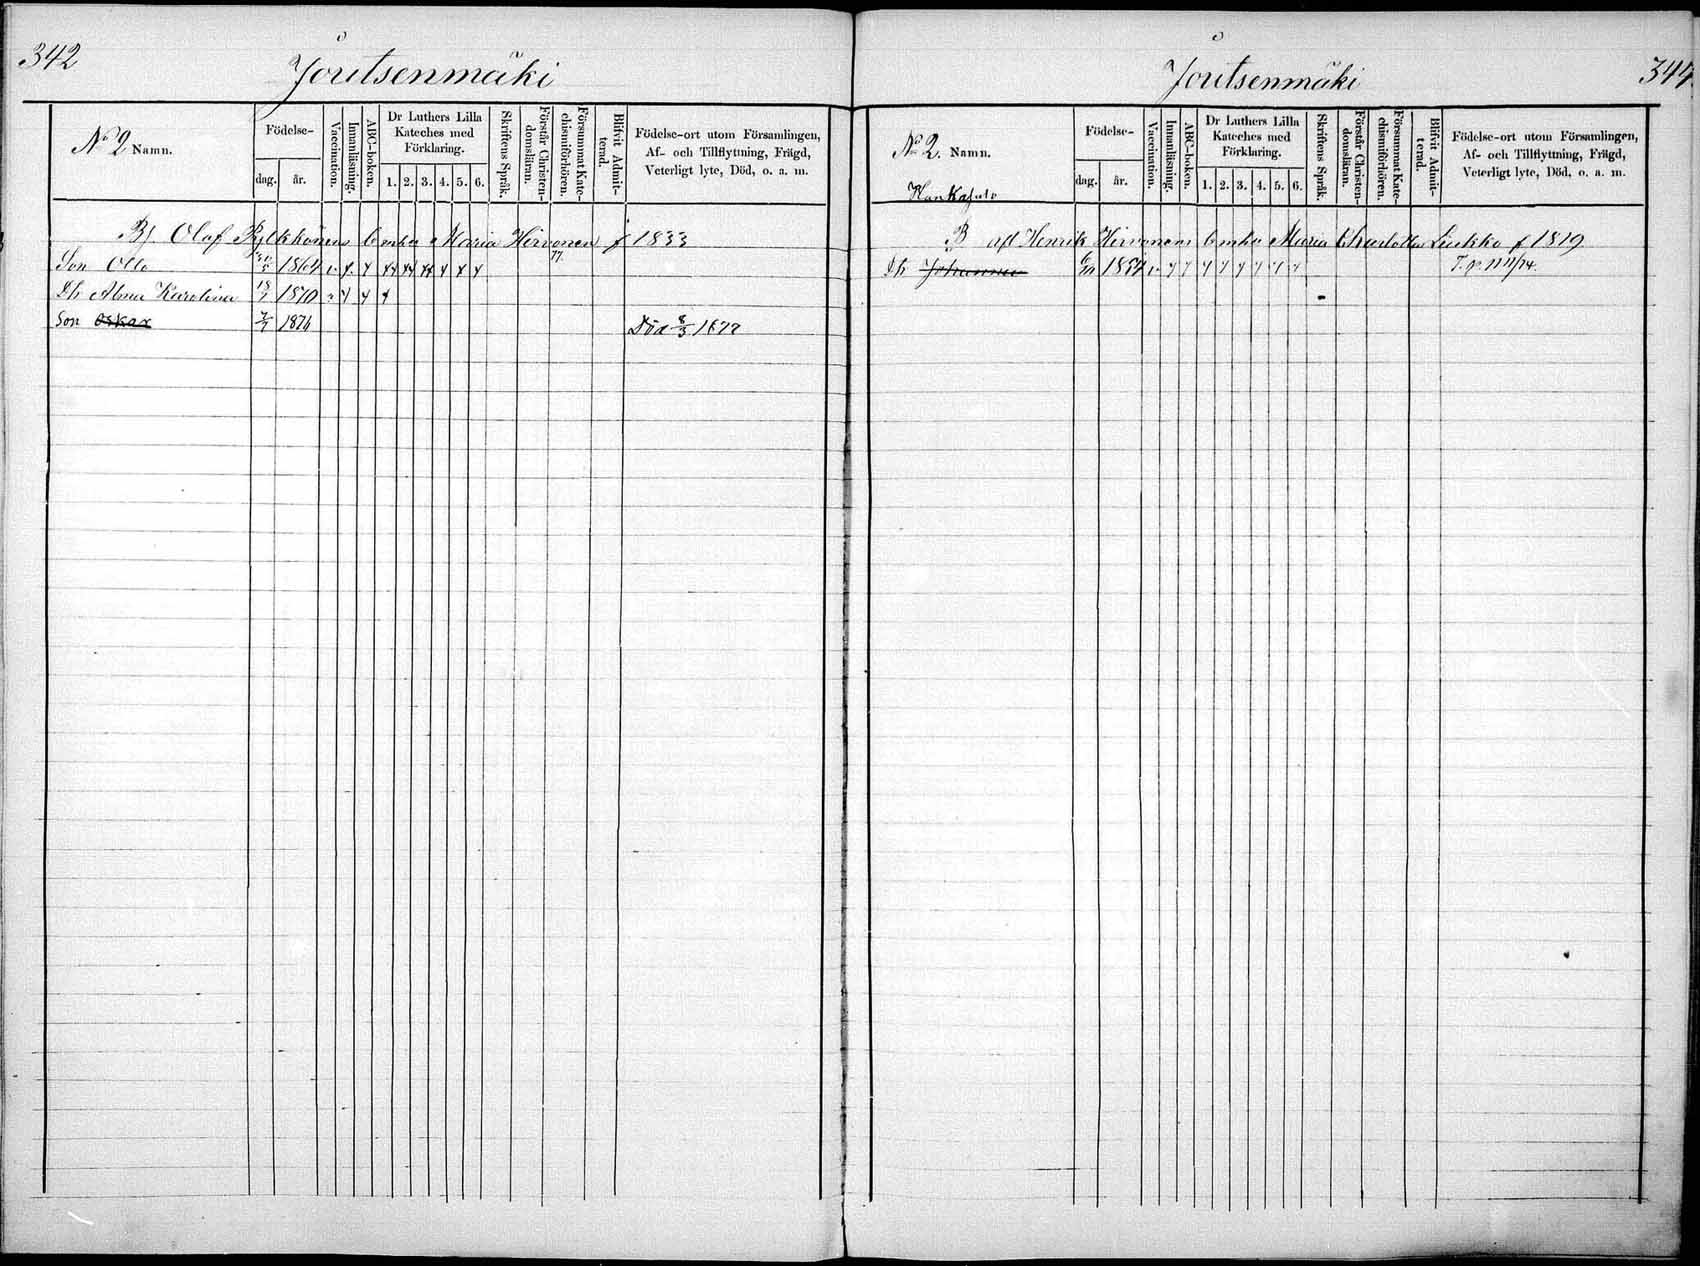 342
Joutsenmäki
No 2 Namn.
Födelse-
dag.
år.
Vaccination.
Innanläsning.
ABC-boken.
Dr Luthers Lilla
Kateches med
Förklaring.
1. 2. 3. 4. 5. 6.
Skriftens Språk.
Förstår Christen-
domsläran.
Försummat Kate-
chismiförhören.
Blifvit Admit-
terad.
Födelse-ort utom Församlingen,
Af- och Tillflyttning, Frägd,
Veterligt lyte, Död, o. a. m.
Bj. Olof Pylkkönens Enka Maria Hirvonen f 1833
Son Otto 1864
77
Dr Anna Karolina 1870
Son Oskar 1876 Död 8/3 1877
344
Joutsenmäki
No 2. Namn.
Födelse-
dag.
år.
Vaccination.
Innanläsning.
ABC-boken.
Dr Luthers Lilla
Kateches med
Förklaring.
1. 2. 3. 4. 5. 6.
Skriftens Språk.
Förstår Christen-
domsläran.
Försummat Kate-
chismiförhören.
Blifvit Admit-
terad.
Födelse-ort utom Församlingen,
Af- och Tillflyttning, Frägd,
Veterligt lyte, Död, o. a. m.
B afl Henrik Hirvonens Enka Maria Charlotta Liukko f 1819
Dr Johanna 1854